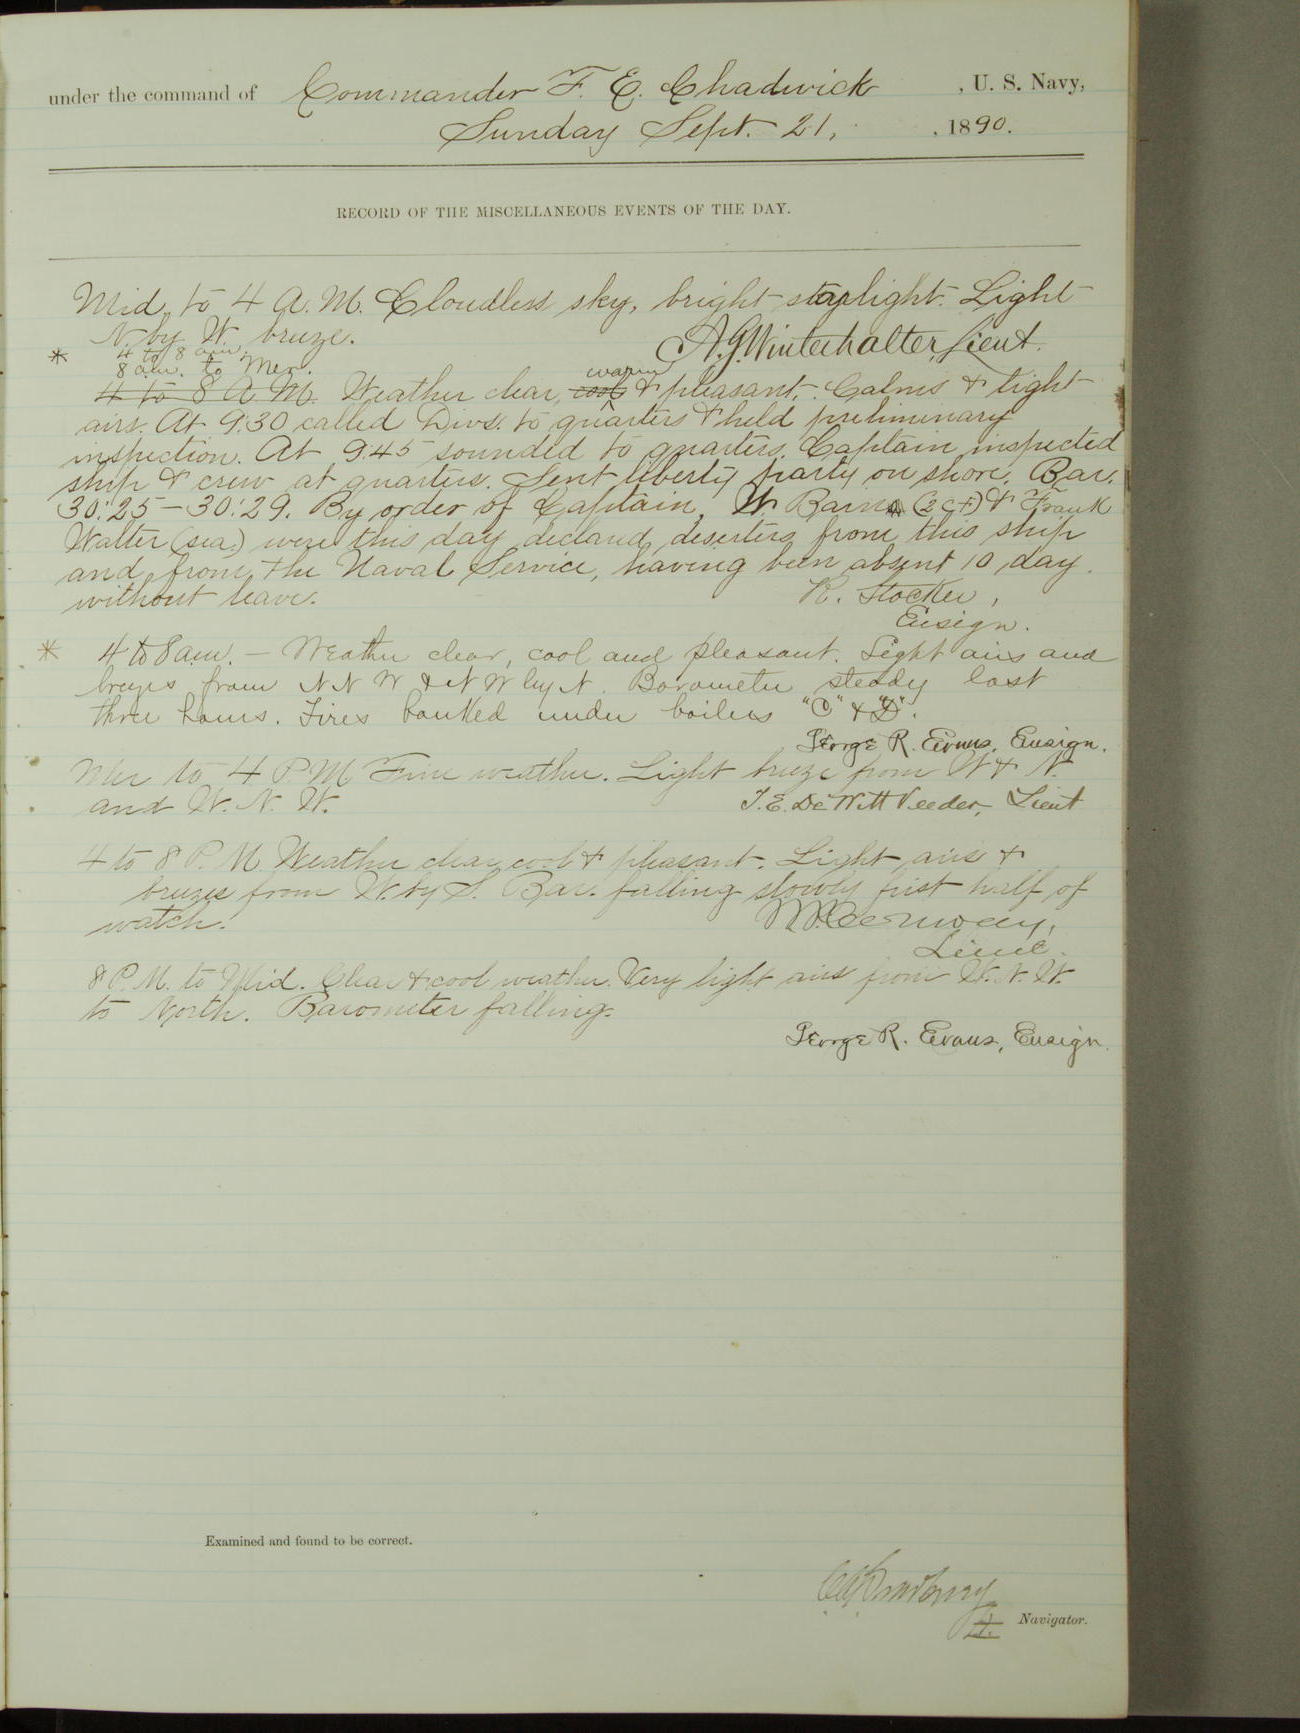 under the command of Commander F. E. Chadwick, U. S. Navy,
Sunday Sept. 21, , 1890.
RECORD OF THE MISCELLANEOUS EVENTS OF THE DAY.
Mid. to 4 A. M. Cloudless sky, bright starlight. Light
N. by W. breeze.
A. G. Winterhalter, Lieut.
* 4 to 8 a.m.
8 a.m. to Mer.
warm
4 to 8 A. M. Weather clear, cool & pleasant. Calms & light
airs. At 9:30 called Divs. to quarters & held preliminary
inspection. At 9:45 sounded to quarters. Captain inspected
ship & crew at quarters. Sent liberty party on shore. Bar.
30:25 – 30:29. By order of Captain, W. Barns & Frank
Walter (sea.) were this day declared deserters from this ship
and from the Naval Service, having been absent 10 day
without leave. R. Stocker,
Ensign.
* 4 to 8 a.m. – Weather clear, cool and pleasant. Light airs and
breezes from N N W & N W by N. Barometer steady last
three hours. Fires banked under boilers "C" & "D".
George R. Evans, Ensign.
Mer to 4 P M Fine weather. Light breeze from W & N.
and W. N. W. T. E. DeWitt Veeder, Lieut
4 to 8 P. M. Weather clear cool & pleasant. Light airs &
breezes from W. by S. Bar. falling slowly first half of
watch.
Lieut.
8 P. M. to Mid. Clear & cool weather. Very light airs from W. N. W.
to North. Barometer falling.
George R. Evans, Ensign.
Examined and found to be correct.
Navigator.